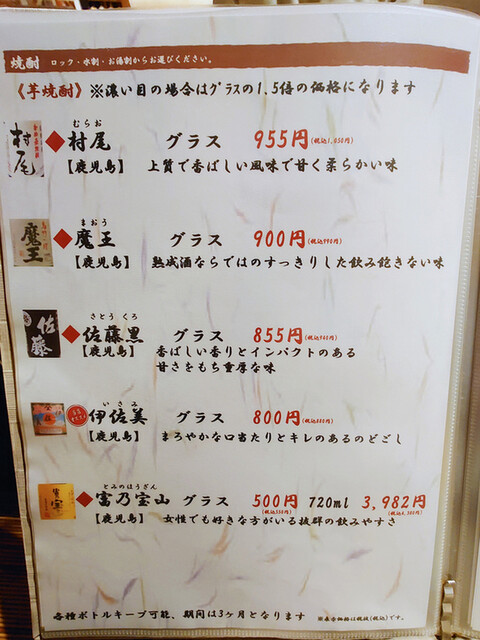 焼酎 ロック・水割・お湯割からお選びください。
《芋焼酎》※濃い目の場合はグラスの1.5倍の価格になります
むらお
村尾
◆村尾 グラス 955円(税込1,050円)
【鹿児島】 上質で香ばしい風味で甘く柔らかい味
まおう
魔王
◆魔王 グラス 900円(税込990円)
【鹿児島】 熟成酒ならではのすっきりした飲み飽きない味
さとう くろ
佐藤
◆佐藤黒 グラス 855円(税込940円)
【鹿児島】 香ばしい香りとインパクトのある
甘さをもち重厚な味
いさみ
◆伊佐美 グラス 800円(税込880円)
【鹿児島】 まろやかな口当たりとキレのあるのどごし
とみのほうざん
◆富乃宝山 グラス 500円(税込550円) 720ml 3,982円(税込4,380円)
【鹿児島】 女性でも好きな方がいる抜群の飲みやすさ
各種ボトルキープ可能、期間は3ヶ月となります ※表示価格は税抜(税込)です。